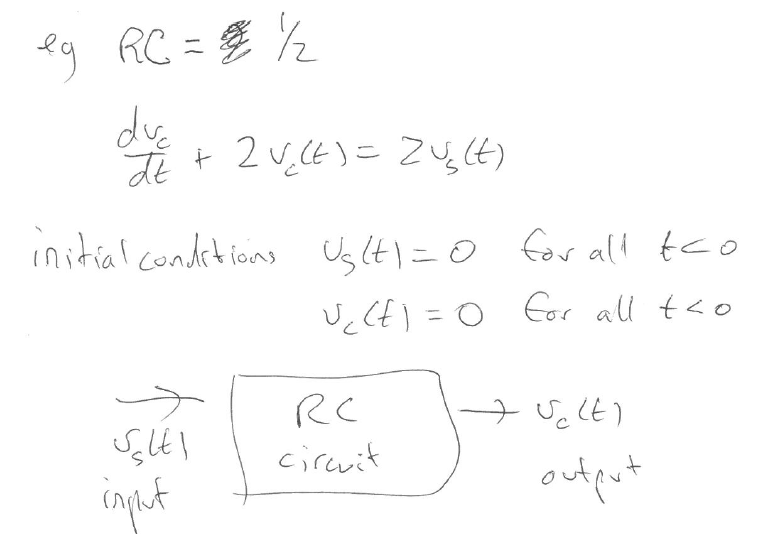 eg RC = 1/2
dv_c/dt + 2v_c(t) = 2v_s(t)
initial conditions v_s(t) = 0 for all t<0
v_c(t) = 0 for all t<0
RC → v_c(t)
v_s(t) circuit output
input